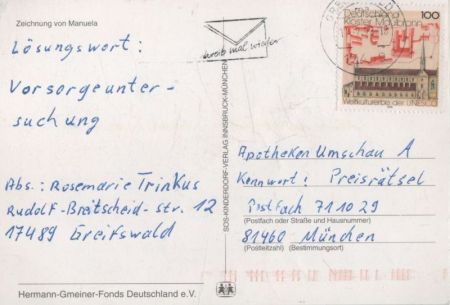 Zeichnung von Manuela
Lösungswort:
Vorsorgeunter-
suchung
Abs.: Rosemarie Trinkus
Rudolf-Breitscheid-str. 12
17489 Greifswald
Hermann-Gmeiner-Fonds Deutschland e.V.
SOS-KINDERDORF-VERLAG INNSBRUCK-MÜNCHEN
schreib mal wieder
Deutschland 100
Kloster Maulbronn
Weltkulturerbe der UNESCO
Apotheken Umschau A
Kennwort: Preisrätsel
Postfach 71 10 29
(Postfach oder Straße und Hausnummer)
81460 München
(Postleitzahl) (Bestimmungsort)